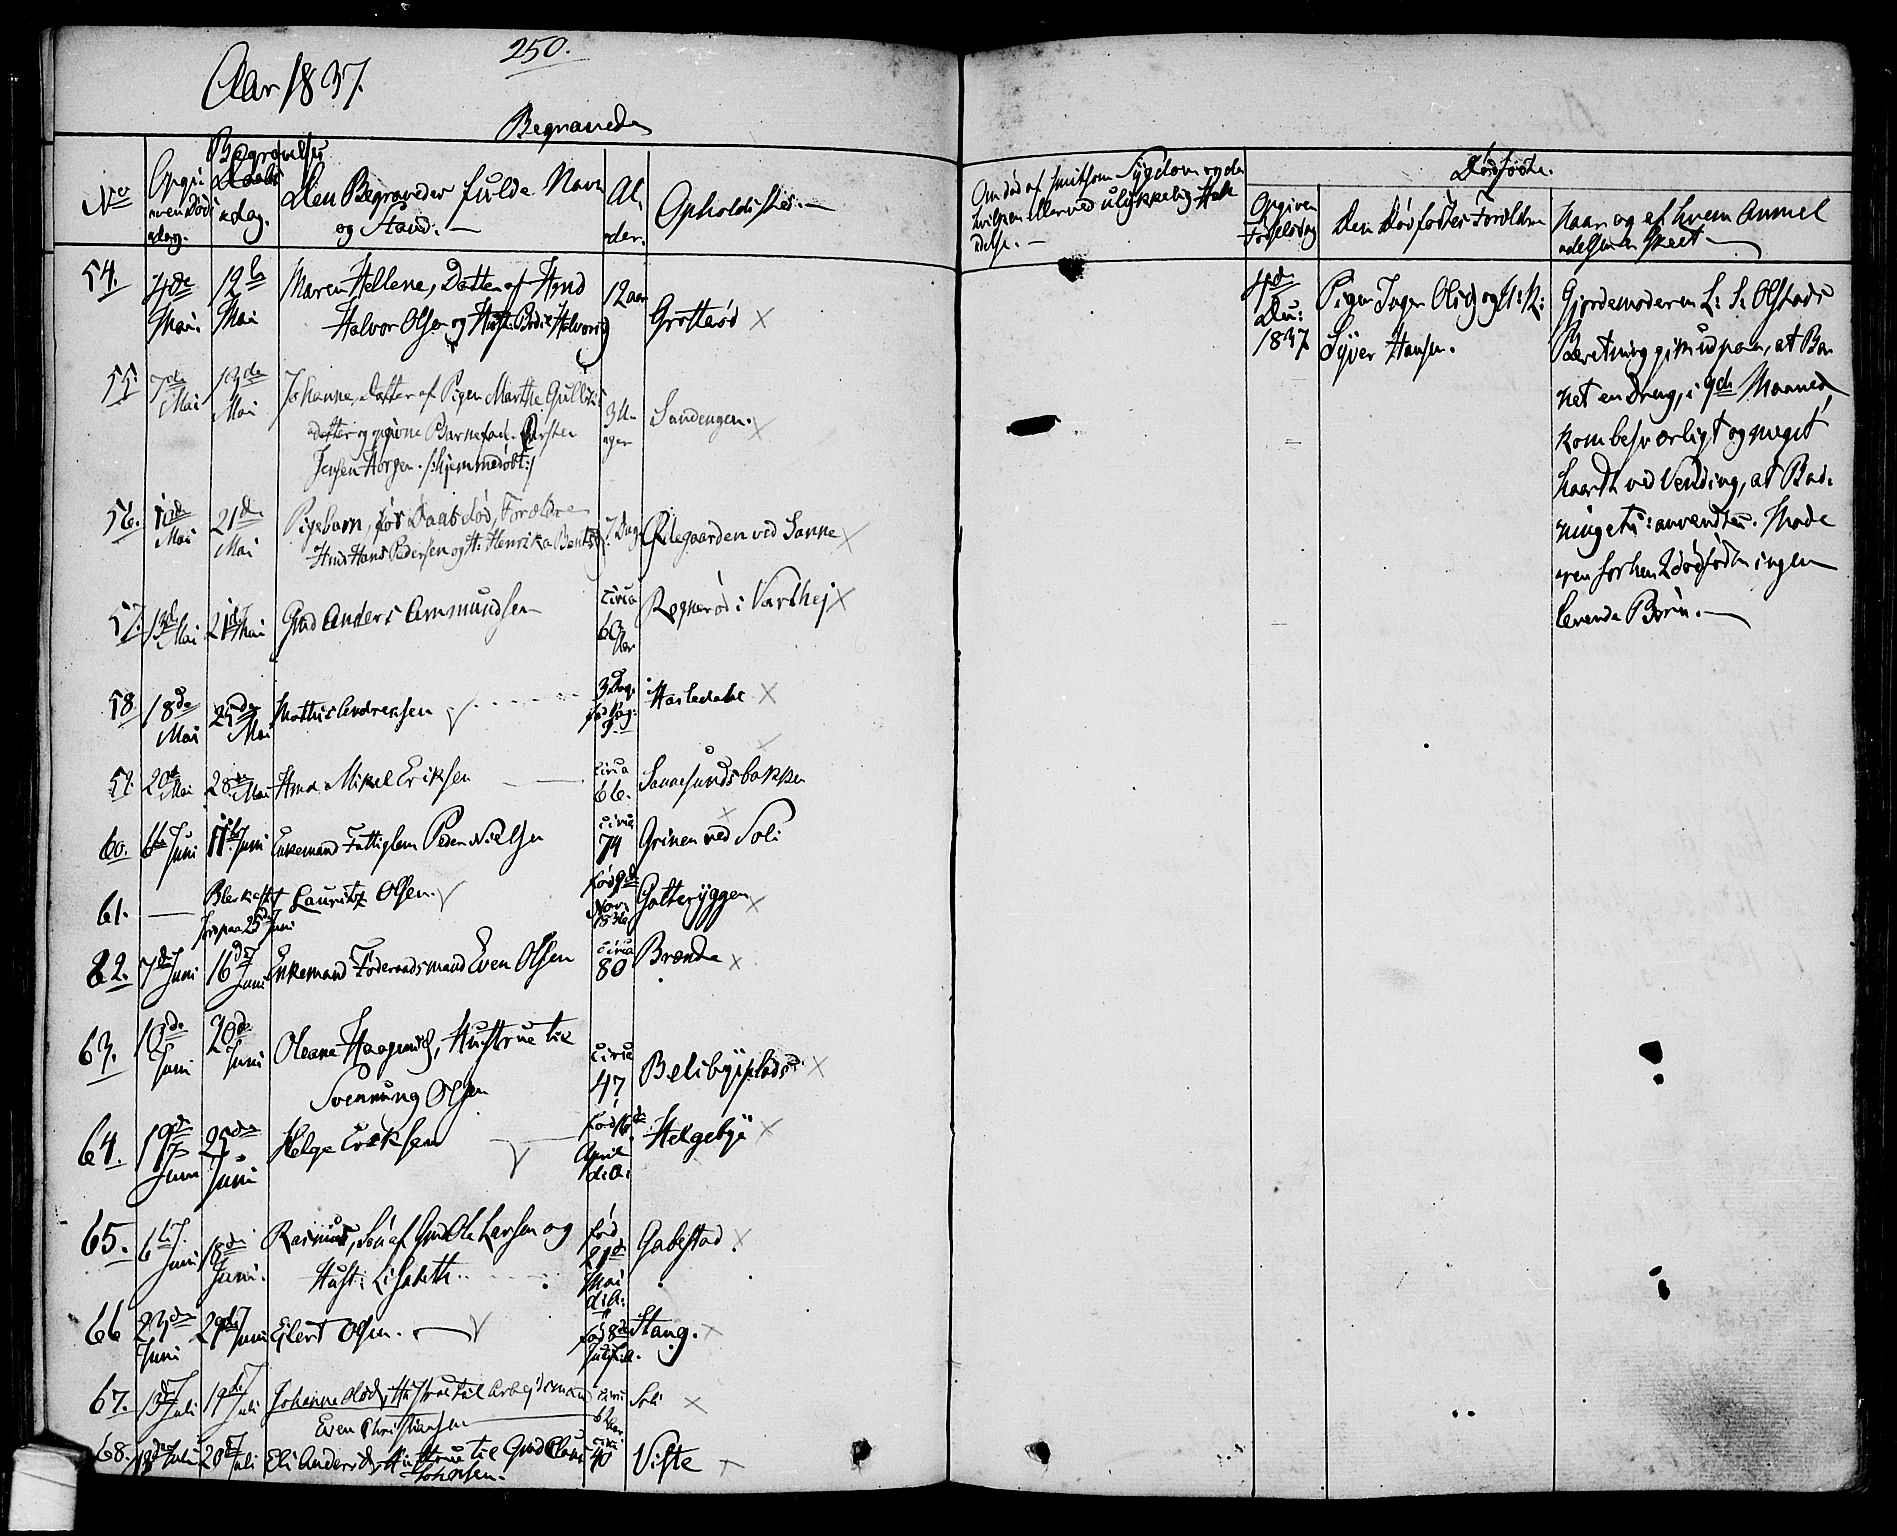 250.
Aar 1837.
Begravede
No
Opgi
ven Døds
dag.
Begravelses
Daabs
dag.
Den Begravedes fulde Navn
og Stand.
Al-
der.
Opholdssted.
54.
4de
Mai
12te
Mai
Maren Hellene, Datter af Hmd
Halvor Olsen og Hust: Bodil Halvorsd
12 aar
Grøtterød X
55.
7de
Mai
13de
Mai
Johanne, Datter af Pigen Marthe Gulbrands
datter og opgivne Barnefad. Carsten
Jensen Horgen. /:hjemmedøbt:/
3 U-
ger
Sandengen. X
56.
10de
Mai
21de
Mai
Pigebarn, før Daab død, Forældre
Hmd Hans Pedersen og H: Henrika Bentsd
7 Dag
Ødegaarden ved Sanne X
57.
13de Mai
21de Mai
Gmd Anders Ammundsen
circa
60
Aar
Røgnerød i Vardhej X
58.
18de
Mai
25de
Mai
Mathis Andreasen
3 Dage
Hasledalen X
59.
20de
Mai
28de
Mai
Hmd Mikel Eriksen
circa
66.
Sannesundsbakken
60.
6te Juni
11te Juni
Enkemand Fattiglem Peder Nielsen
circa
74
Grinen ved Soli
61.
Blev kastet
Jord paa 25de Juni
Lauritz Olsen.
fød 9de
Nov.
1836
Galterüggen X
62.
7de Juni
16de Juni
Enkemand Føderaadsmand Even Olsen
circa
80
Brænde X
63.
10de
Juni
20de
Juni
Oleane Haagensd, Hustrue til
Svennung Olsen
circa
47
Belsbyepladsen X
64.
19de
Juni
25de
Juni
Helge Eriksen
Fød 16de
April
d: A:
Helgebye X
65.
6te
Juni
18de
Juni.
Rasmus, Søn af Gmd Ole Larsen og
Hust: Lisabeth
fød
21de
Mai
d: A:
Gabestad. X
66
23de
Juni
29de Juni
Ejlert Olsen.
fød 8de
Stang. X
67.
13de Juli
19de Juli
Johanne Olsd, Hustrue til Arbejdsmand
Even Christiansen
circa
Soli X
68.
18de Juli
20de Juli
Eli Andersd, Hustrue til Gmd Claus
Johansen.
circa
40
Viste
Om død af smitsom Sygdom og da
hvilken eller ved ulykkelig Hæn
delse.
Dødfødte.
Opgiven
Fødselsdag
Den Dødfødtes Forældre
Naar og af hvem Anmel
delsen er skeet
4de
Dec:
1837
Pigen Inger Olsd og U: K:
Syver Hansen.
Gjordemoderen L: S: Olstads
Beretning gik ud paa, at Bar
net en Dreng, i 9de Maaned,
kom besværligt og meget
haardt ved Vending, at Bad-
ning etc: anvendtes. Mode
ren forhen 2 dødfødte ingen
levende Børn.